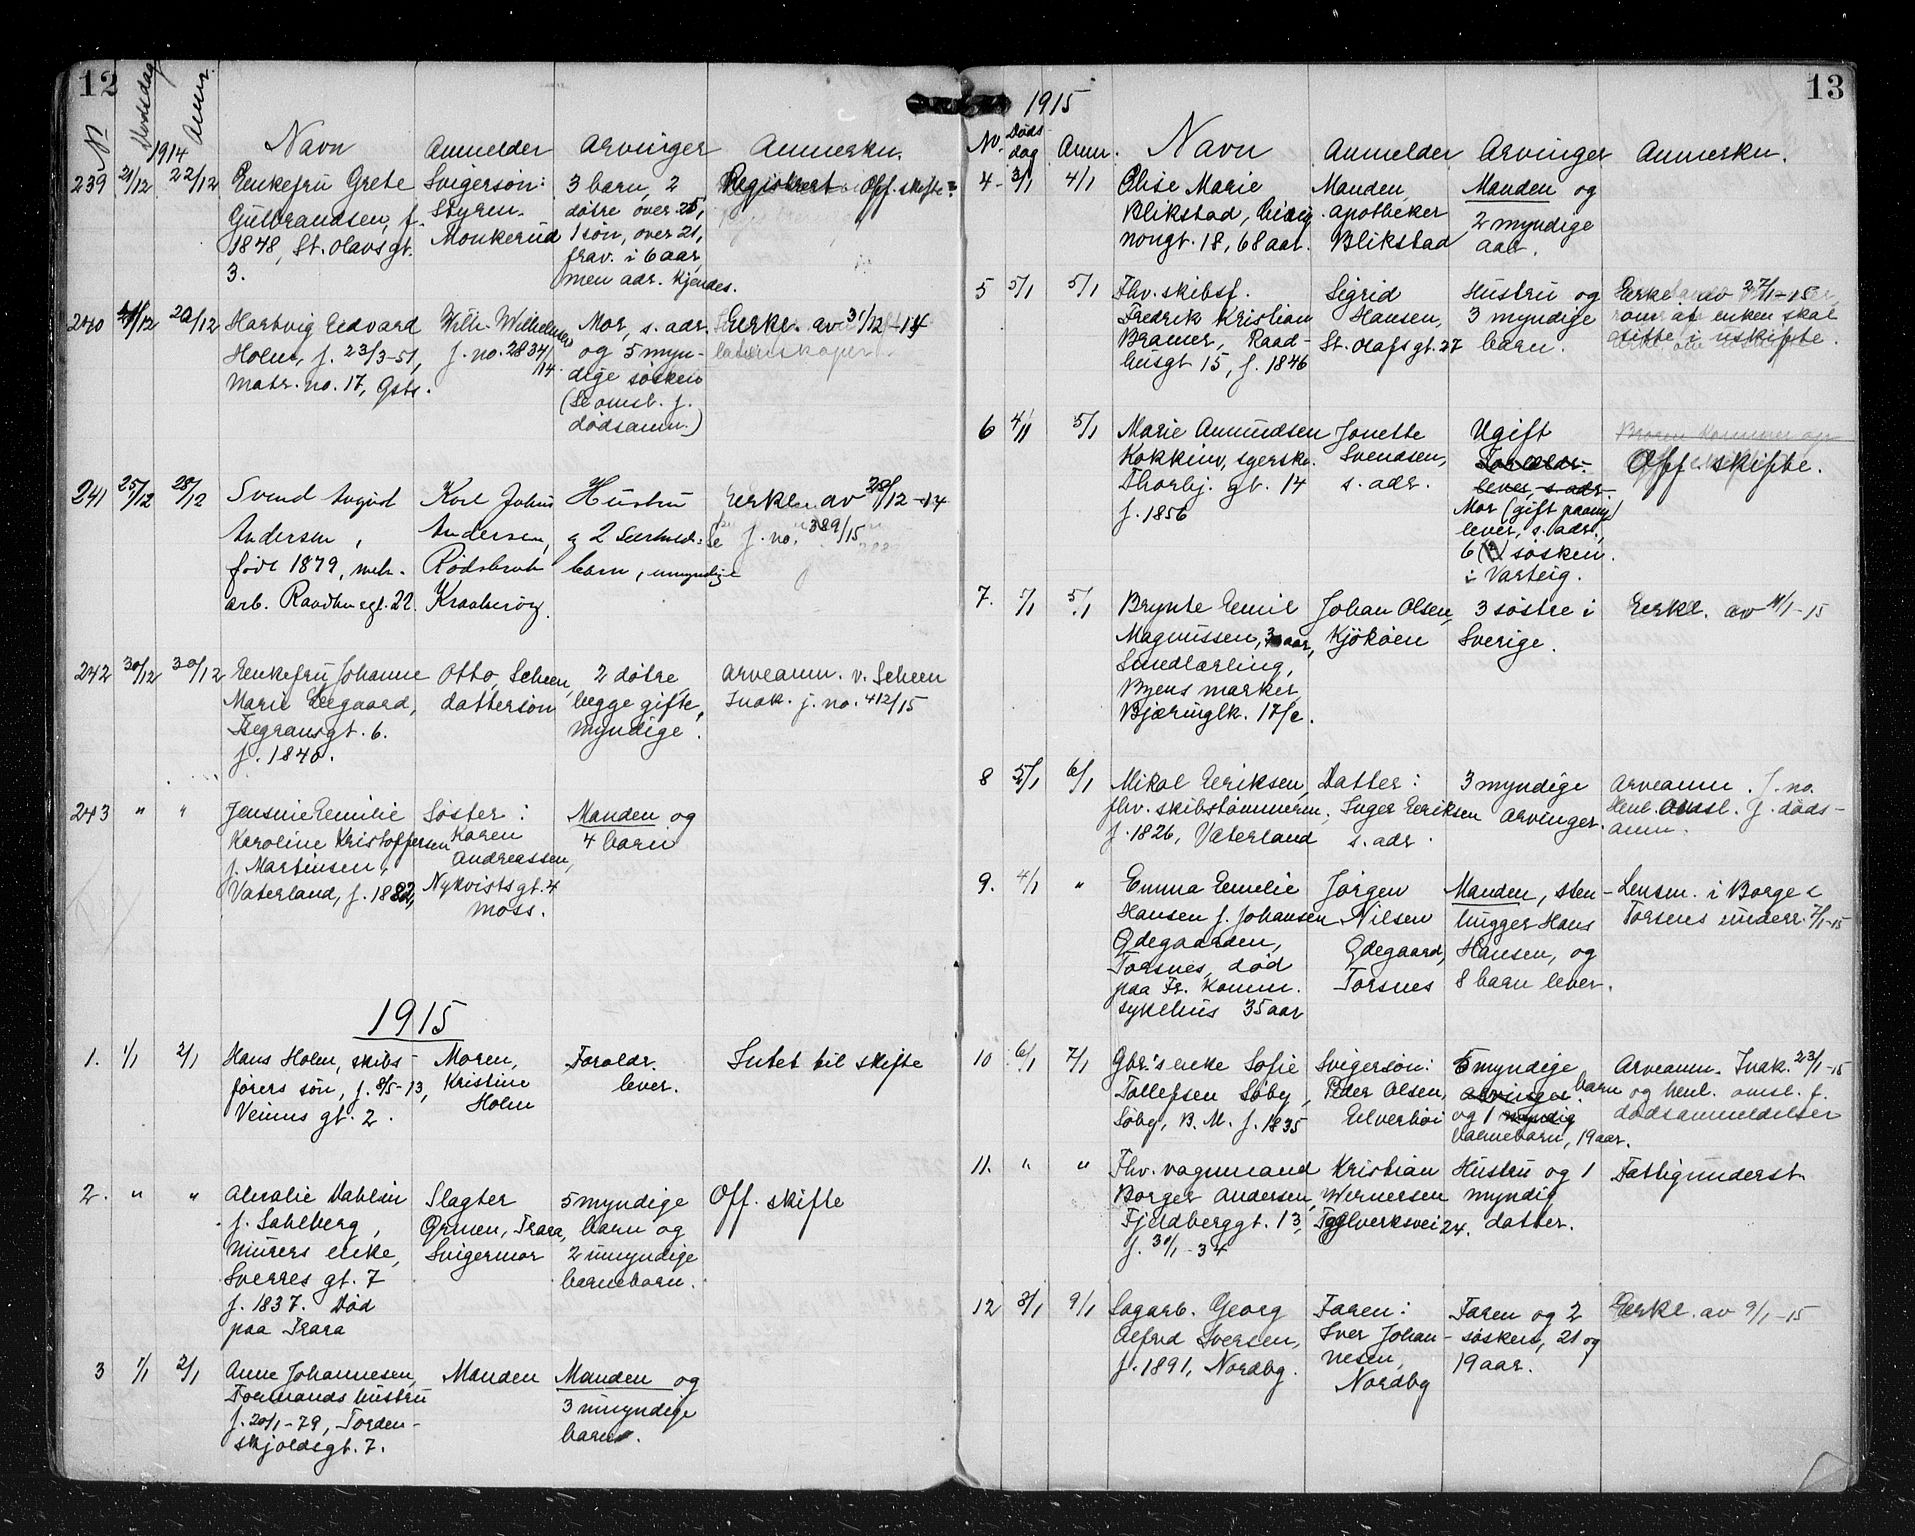 12
No
Dødsdag
Anm.
1914
Navn
Anmelder
Arvinger
Anmerkn.
239 21/12 22/12
Enkefru Grete
Gulbrandsen, f.
1848, St. Olavsgt.
3.
Svigersøn:
Styrm.
Monkerud
3 barn, 2
døtre over 25,
1 søn, over 21,
frav. i 6 aar,
men adr. kjendes.
Registrert Off. skifte
240 21/12 22/12
Hartvig Edvard
Holm, f. 23/3-51,
matr. no. 17, Gsts.
Wilh. Wilhelmsen
j. no. 2834/14.
Mor, s. adr.
og 5 myn-
dige søsken
(Se omsl. f.
dødsanm.)
Eerkl. av 31/12-14
241 25/12 28/12
Svend August
Andersen,
født 1879, mek.
arb. Raadhusgt. 22.
Karl Johns
Andersen,
Rødsbrot
Kraakerøy.
Hustru
g 2
barn, umyndige
Eerklær. av 28/12-14
Se j. no. 389/15
242 30/12 30/12
Enkefru Johanne
Marie Eegaard,
Hegransgt. 6.
f. 1840.
Otto Scheen,
dattersøn
2 døtre,
begge gifte,
myndige.
Arveanm. v. Scheen
Inak. j. no. 412/15
243 " "
Jensine Emilie
Karoline Kristoffersen
f. Martinsen,
Vaterland, f. 1882,
Søster:
Karen
Andreassen,
Nykvistsgt. 4
Moss.
Manden og
4 barn
1915
1. 1/1 2/1
Hans Holm, skibs-
førers søn, f. 8/5-13,
Venus gt. 2.
Moren,
Kristine
Holm
Foreldr.
lever.
Intet til skifte
2. " "
Alvalie Dahlin
f. Sahlberg,
murers enke,
Sverres gt. 7
f. 1837. Død
paa Trara
Slagter
Ormen, Trara,
Svigermor
5 myndige
barn og
2 umyndige
barnebarn.
Off. skifte
3 1/1 2/1
Anne Johannesen,
Formands hustru
f. 20/1-79, Torden-
skjoldsgt. 7.
Manden
Manden og
3 umyndige
barn.
13
1915
No.
Døds-
dag
Anm.
Navn
Anmelder
Arvinger
Anmerkn.
4- 3/1 4/1
Elise Marie
Blikstad,
nongt. 18, 68 aar.
Manden,
apotheker
Blikstad
Manden og
2 myndige
aar.
5 5/1 5/1
Fhv. skibsf.
Fredrik Kristian
Bramer, Raad-
husgt 15, f. 1846
Sigrid
Hansen,
St. Olafsgt. 27
Hustru og
3 myndige
barn.
Eerkl. av 27/1-15
om at enken skal
sitte i uskifte.
6 4/1 5/1
Marie Amundsen
Kokkim, syerske.
Thorbj. gt. 14
f. 1856
Jonette
Svendsen,
s. adr.
Ugift
Foreldr.
lever, s. adr.
Mor (gift paany)
lever, s. adr.,
6 (?) søsken
i Varteig.
Broren kommer op
Off. skifte.
7. 5/1 5/1
Brynte Emil
Magnussen, 30 aar,
Smedlærling,
Byens marker
Bjæringlk. 17/e.
Johan Olsen,
Kjøkøen
3 søstre i
Sverige.
Eerkl. av 11/1-15
8 5/1 6/1
Mikal Eeriksen
fhv. skibstømmerm.
f. 1826, Vaterland
Datter:
Inger Eeriksen
s. adr.
3 myndige
Arvinger.
Arveanm. J. no.
Henl. omsl. f. døds-
anm.
9. 4/1 "
Emma Emelie
Hansen f. Johansen
Ødegaarden,
Torsnes, død
paa Fr. komm.
sykehus 35 aar
Jørgen
Nilsen
Ødegaard,
Torsnes
Manden, sten-
hugger Hans
Hansen, og
8 barn lever.
Lensm. i Borge &
Torsnes underr. 7/1-15
10 6/1 7/1
Gbr.'s enke Sofie
Tollefsen Søby,
Søby, B. M. f. 1835
Svigersøn:
Peder Olsen,
Eelverhøi
5 myndige
arvinger. barn
og 1 myndig
barnebarn, 19 aar.
Arveanm. Inak. 23/1-15
og henl. omsl. f.
dødsanmeldelser
11. " "
Fhv. vognmand
Borger Andersen,
Fjeldberggt. 13,
f. 30/1-34
Kristian
Wernersen
Teglverksvei 24.
Hustru og 1
myndig
datter.
Fattigunderst.
12 8/1 9/1
Sagarb. Georg
Alfred Iversen,
f. 1891, Nordbg.
Faren:
Iver Johan-
nesen,
Nordbg
Faren og 2
søsken, 21 og
19 aar.
Eerkl. av 9/1-15